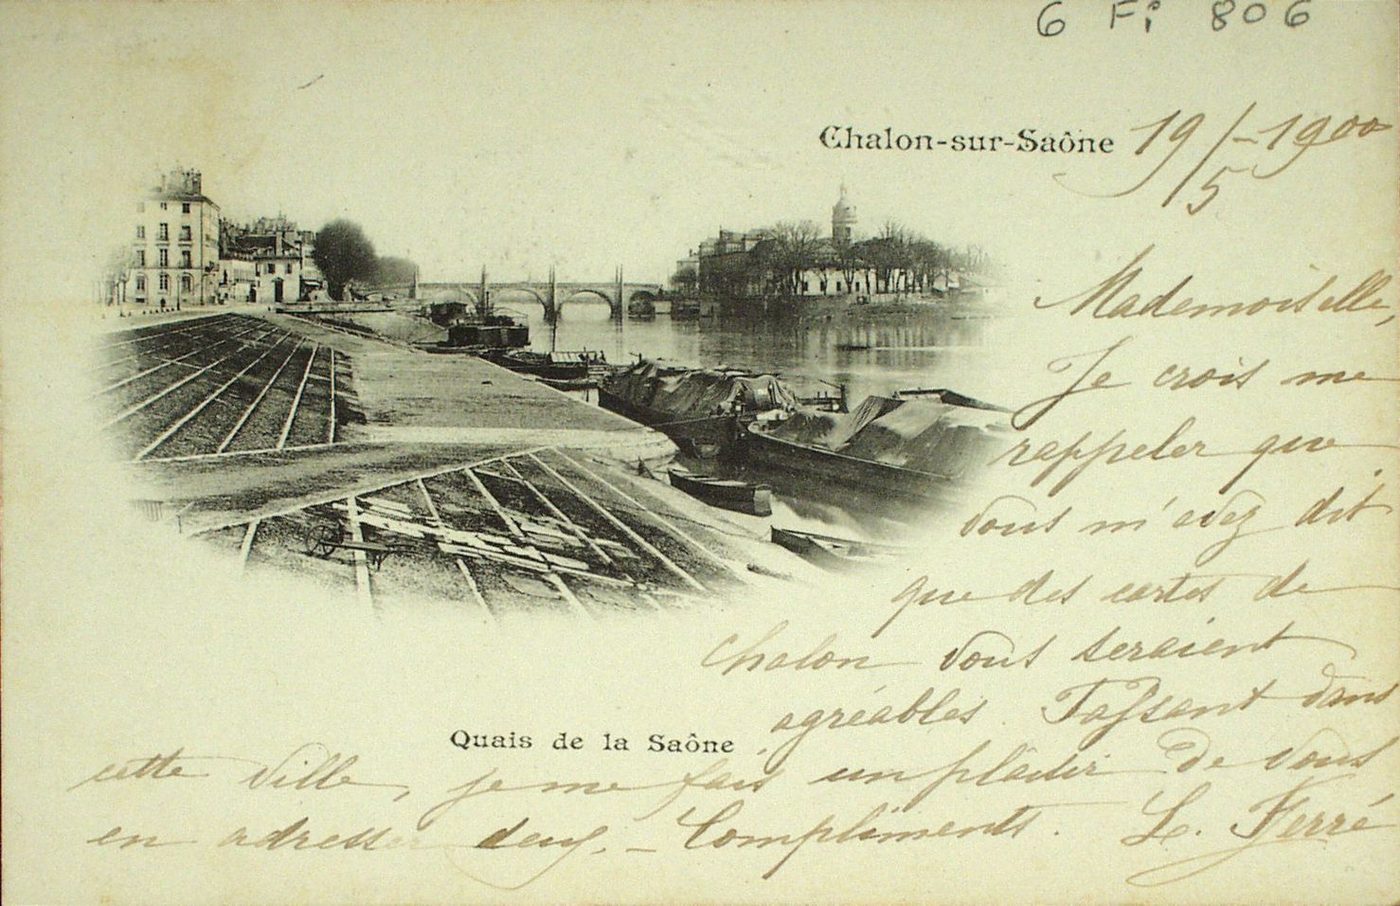 6 Fi 806
Chalon-sur-Saône 19/5-1900
Mademoiselle,
Je crois me
rappeler que
vous m'avez dit
que des cartes de
Chalon vous seraient
agréables. Passant dans
Quais de la Saône
cette ville, je me fais un plaisir de vous
en adresser deux. – Compliments. L. Ferré